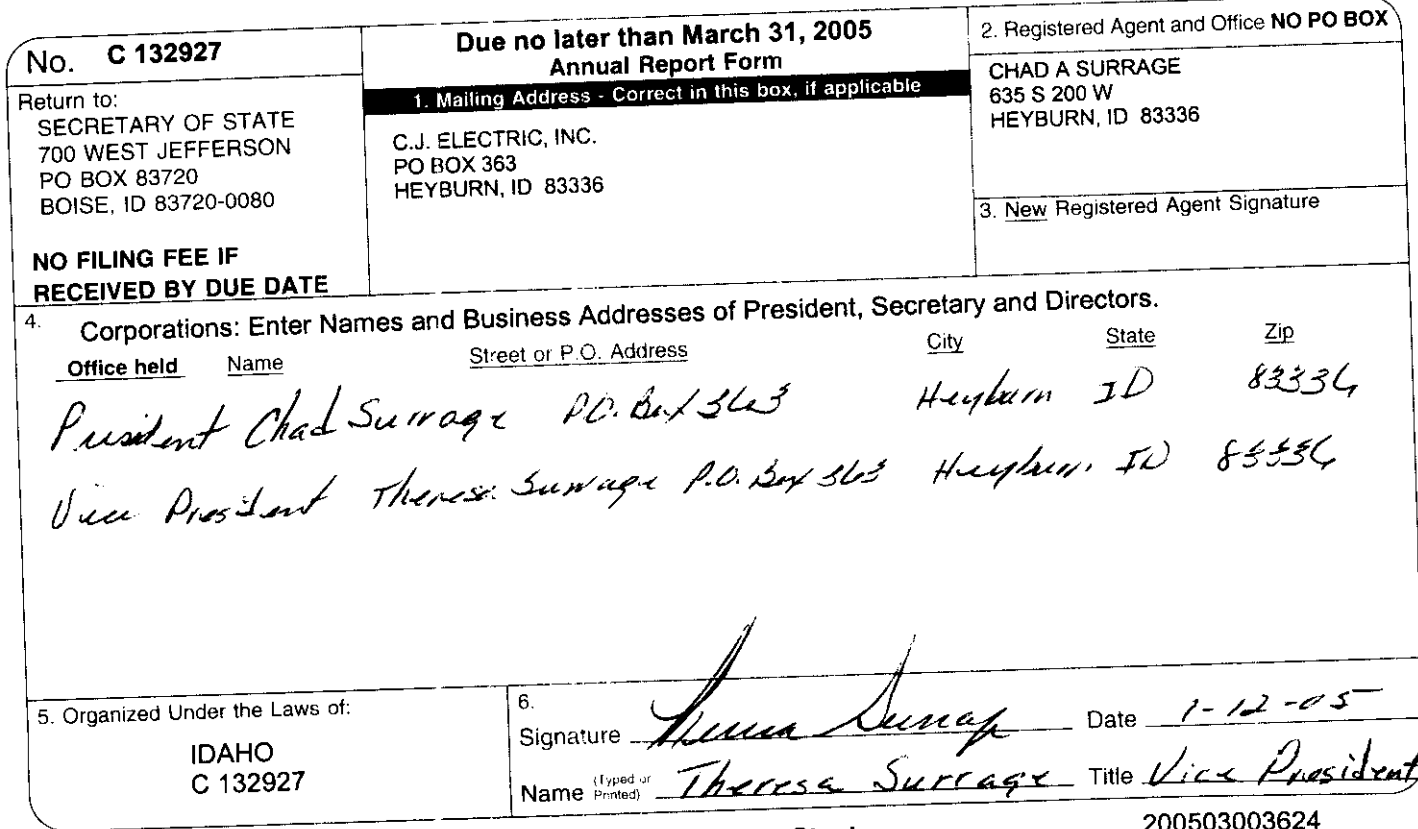 No. C 132927
Return to:
SECRETARY OF STATE
700 WEST JEFFERSON
PO BOX 83720
BOISE, ID 83720-0080
NO FILING FEE IF
RECEIVED BY DUE DATE
Due no later than March 31, 2005
Annual Report Form
1. Mailing Address - Correct in this box, if applicable
C.J. ELECTRIC, INC.
PO BOX 363
HEYBURN, ID 83336
2. Registered Agent and Office NO PO BOX
CHAD A SURRAGE
635 S 200 W
HEYBURN, ID 83336
3. New Registered Agent Signature
4. Corporations: Enter Names and Business Addresses of President, Secretary and Directors.
Office held Name Street or P.O. Address City State Zip
President Chad Surrage P.O. Box 363 Heyburn ID 83336
Vice President Theresa Surrage P.O. Box 363 Heyburn, ID 83336
5. Organized Under the Laws of:
IDAHO
C 132927
6.
Signature Theresa Surrage Date 1-12-05
Name (Typed or Printed) Theresa Surrage Title Vice President
200503003624